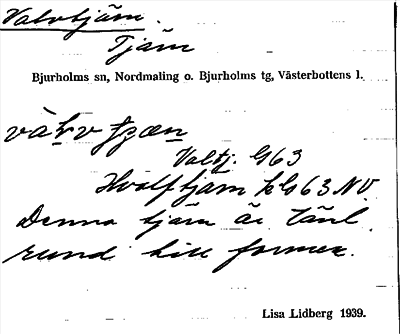 Valvtjärn.
Tjärn
Bjurholms sn, Nordmaling o. Bjurholms tg, Västerbottens l.
Valtj. G63
Hvalftjärn kG63NV.
Denna tjärn är
rund till formen.
Lisa Lidberg 1939.